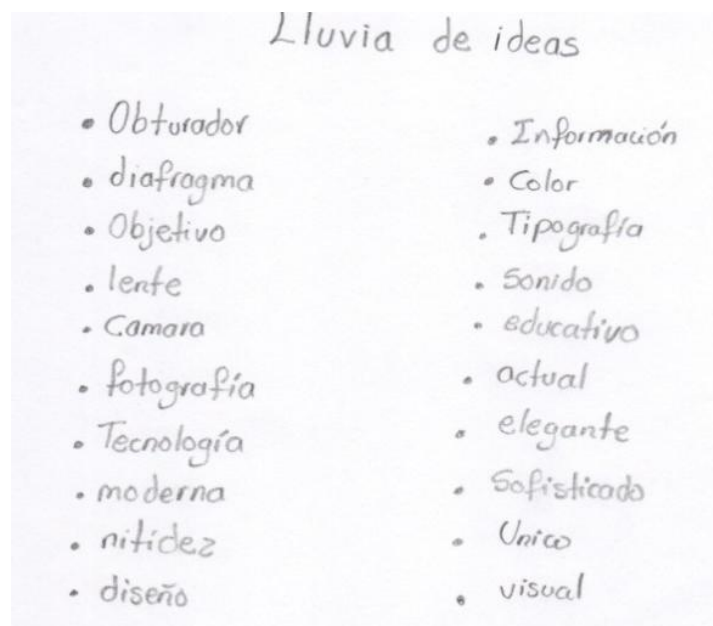 Lluvia de ideas
• Obturador
• diafragma
• Objetivo
• lente
• Camara
• fotografía
• Tecnología
• moderna
• nitídez
• diseño
• Información
• Color
• Tipografía
• Sonido
• educativo
• actual
• elegante
• Sofisticado
• Unico
• visual